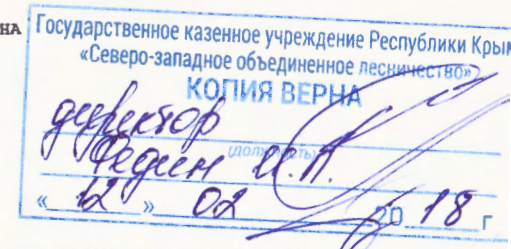 НА
Государственное казенное учреждение Республики Крым
«Северо-западное объединенное лесничество»
КОПИЯ ВЕРНА
директор
(должность)
Федин И.А.
« 12 » 02 20 18 г